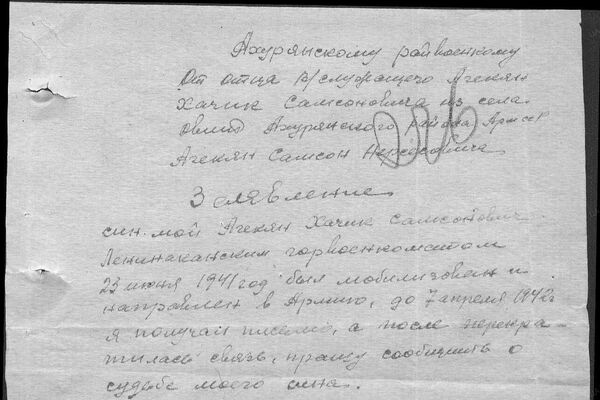 Ахурянскому райвоенкому
От отца в/служащего Агекян
Хачик Самсоновича из села
Овит Ахурянского района Арм ССР
Агекян Самсон Нерсесовича
Заявление
син. мой Агекян Хачик Самсонович
Ленинаканским горвоенкоматом
23 июня 1941 год был мобилизован и
направлен в Армию, до 7 апреля 1942г
я получал письмо, а после перекра-
тилась связь, прашу сообщить о
судьбе моего сина.